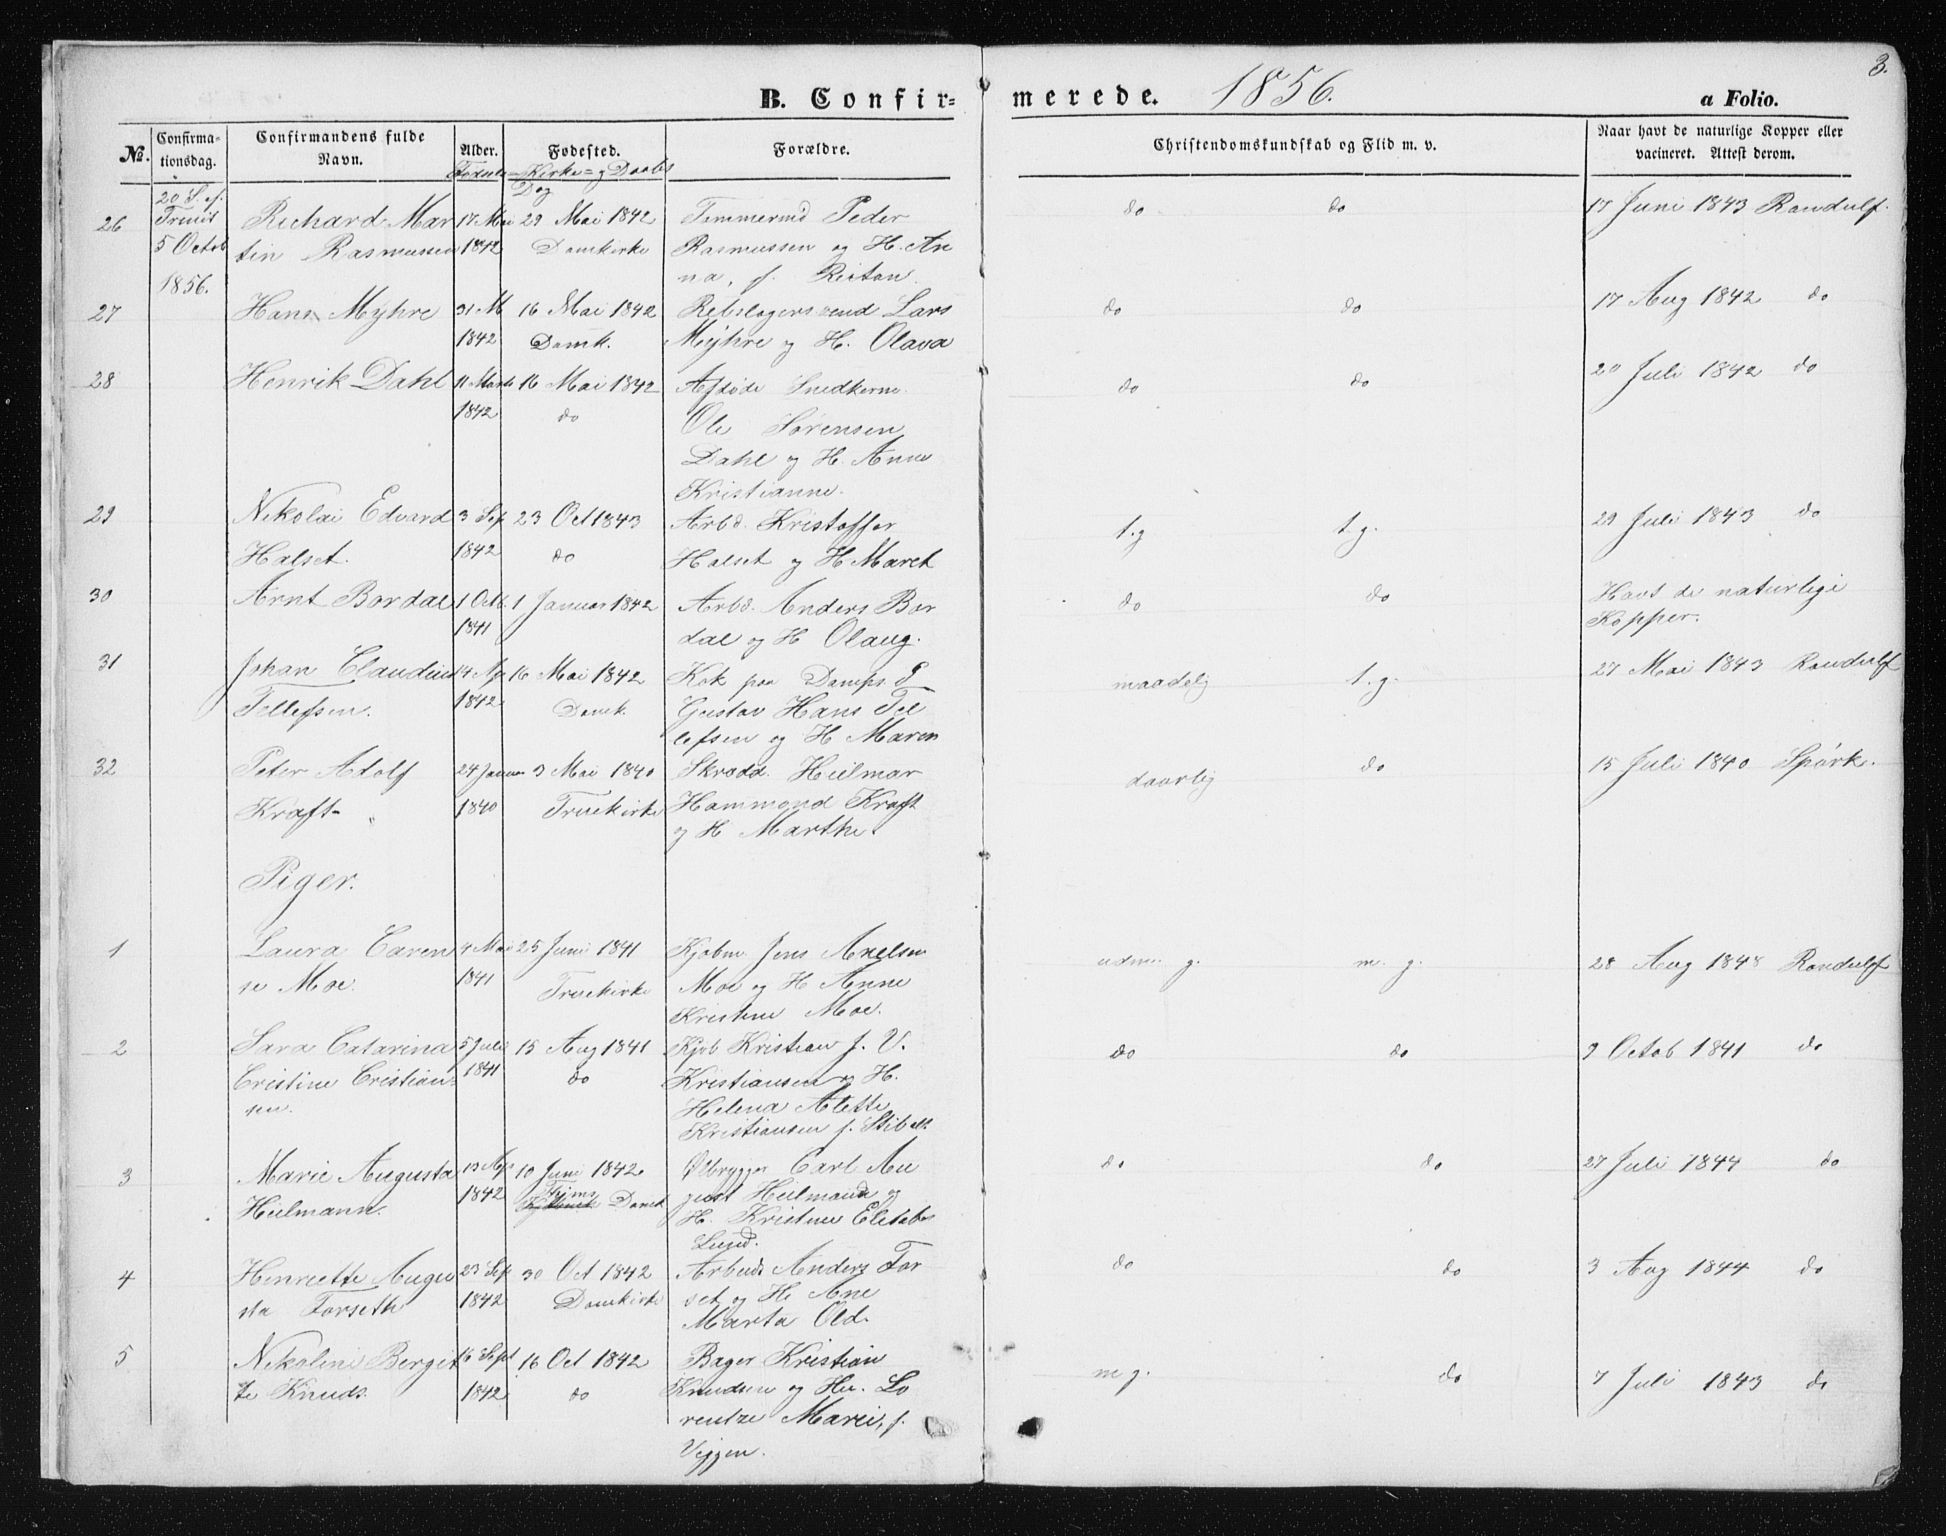 B. Confirmerede. 1856. a Folio. 3.
№. Confirmationsdag. Confirmandens fulde Navn. Alder. Fødested. Forældre. Christendomskundskab og Flid m. v. Naar havt de naturlige Kopper eller vacineret. Attest derom.
Kirke= og Daabs
Dag
20 S. ef.
Trinit
5 Octob
1856.
26 Richard Mar 17 Mai 29 Mai 1842 Tømmermd Peder do do 17 Juni 1843 Randulf.
tin Rasmussen 1842 Domkirke Rasmussen og H. An
na, f. Reitan.
27 Hans Myhre 31 M 16 Mai 1842 Rebslagersvend Lars do do 17 Aug 1842 do
1842 Domk. Myhre og H. Olava
28 Henrik Dahl 11 Marts 16 Mai 1842 Afdøde Snedkersv. do do 20 Juli 1842 do
1842 do Ole Sørensen
Dahl og H. Anne
Kristianne.
29 Nikolai Edvard 3 Sep 23 Oct 1843 Arbd. Kristoffer t.g t.g. 29 Juli 1843 do
Halset. 1842 do Halset og H Maret
30 Arnt Bordal 1 Octb. 1 Januar 1842 Arbd. Anders Bor do do Havt de naturlige
1841 dal og H Olaug. Kopper.
31 Johan Claudius 14 Ap 16 Mai 1842 Kok paa Damps. P maadelig t.g. 27 Mai 1843 Randulf
Tellefsen. 1842 Domk. Gustav Hans Tel
lefsen og H Maren
32 Peter Adolf 24 Januar 3 Mai 1840 Skrædd. Heilmar daarlig do 15 Juli 1840 Spørk.
Kraft 1840 Fruekirke Hammond Kraft
og H Marthe.
Piger.
1 Laura Caren 4 Mai 25 Juni 1841 Kjøbm Jens Axelsen udm. g. m. g. 28 Aug 1848 Randulf
se Moe. 1841 Fruekirke Moe og H Anne
Kristine Moe.
2 Sara Catarina 5 Juli 15 Aug 1841 Kjøb Kristian J. V. do do 9 Octob 1841 do
Cristine Cristian= 1841 do Kristiansen og H.
sen. Helena Alette
Kristiansen f. Stibolt.
3 Marie Augusta 13 Ap 10 Juni 1842 Ølbrygger Carl Au do do 27 Juli 1844 do
Heilmann. 1842 Domk gust Heilmann og
H. Kristine Elisabet
Lund.
4 Henriette Augu 23 Sep 30 Oct 1842 Arbmd. Anders For do do 3 Aug 1844 do
sta Forseth 1842 Domkirke set og H. Ane
Marta Old.
5 Nikoline Bergit 16 Sept 16 Oct 1842 Bager Kristian m g. do 7 Juli 1843 do
te Knuds. 1842 do Knudsen og Hu. Lo
rentze Marei, f.
Viggen.